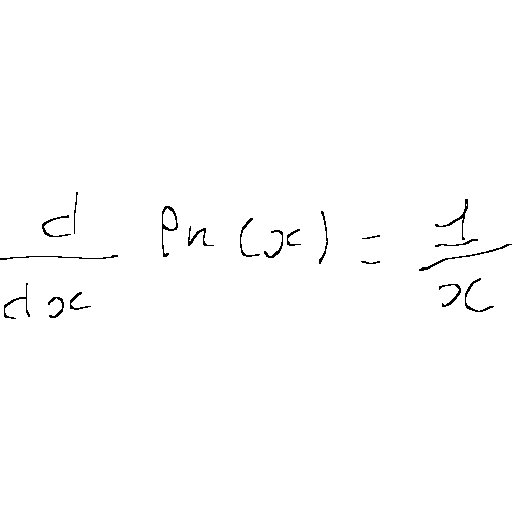 d/dx ln(x) = 1/x